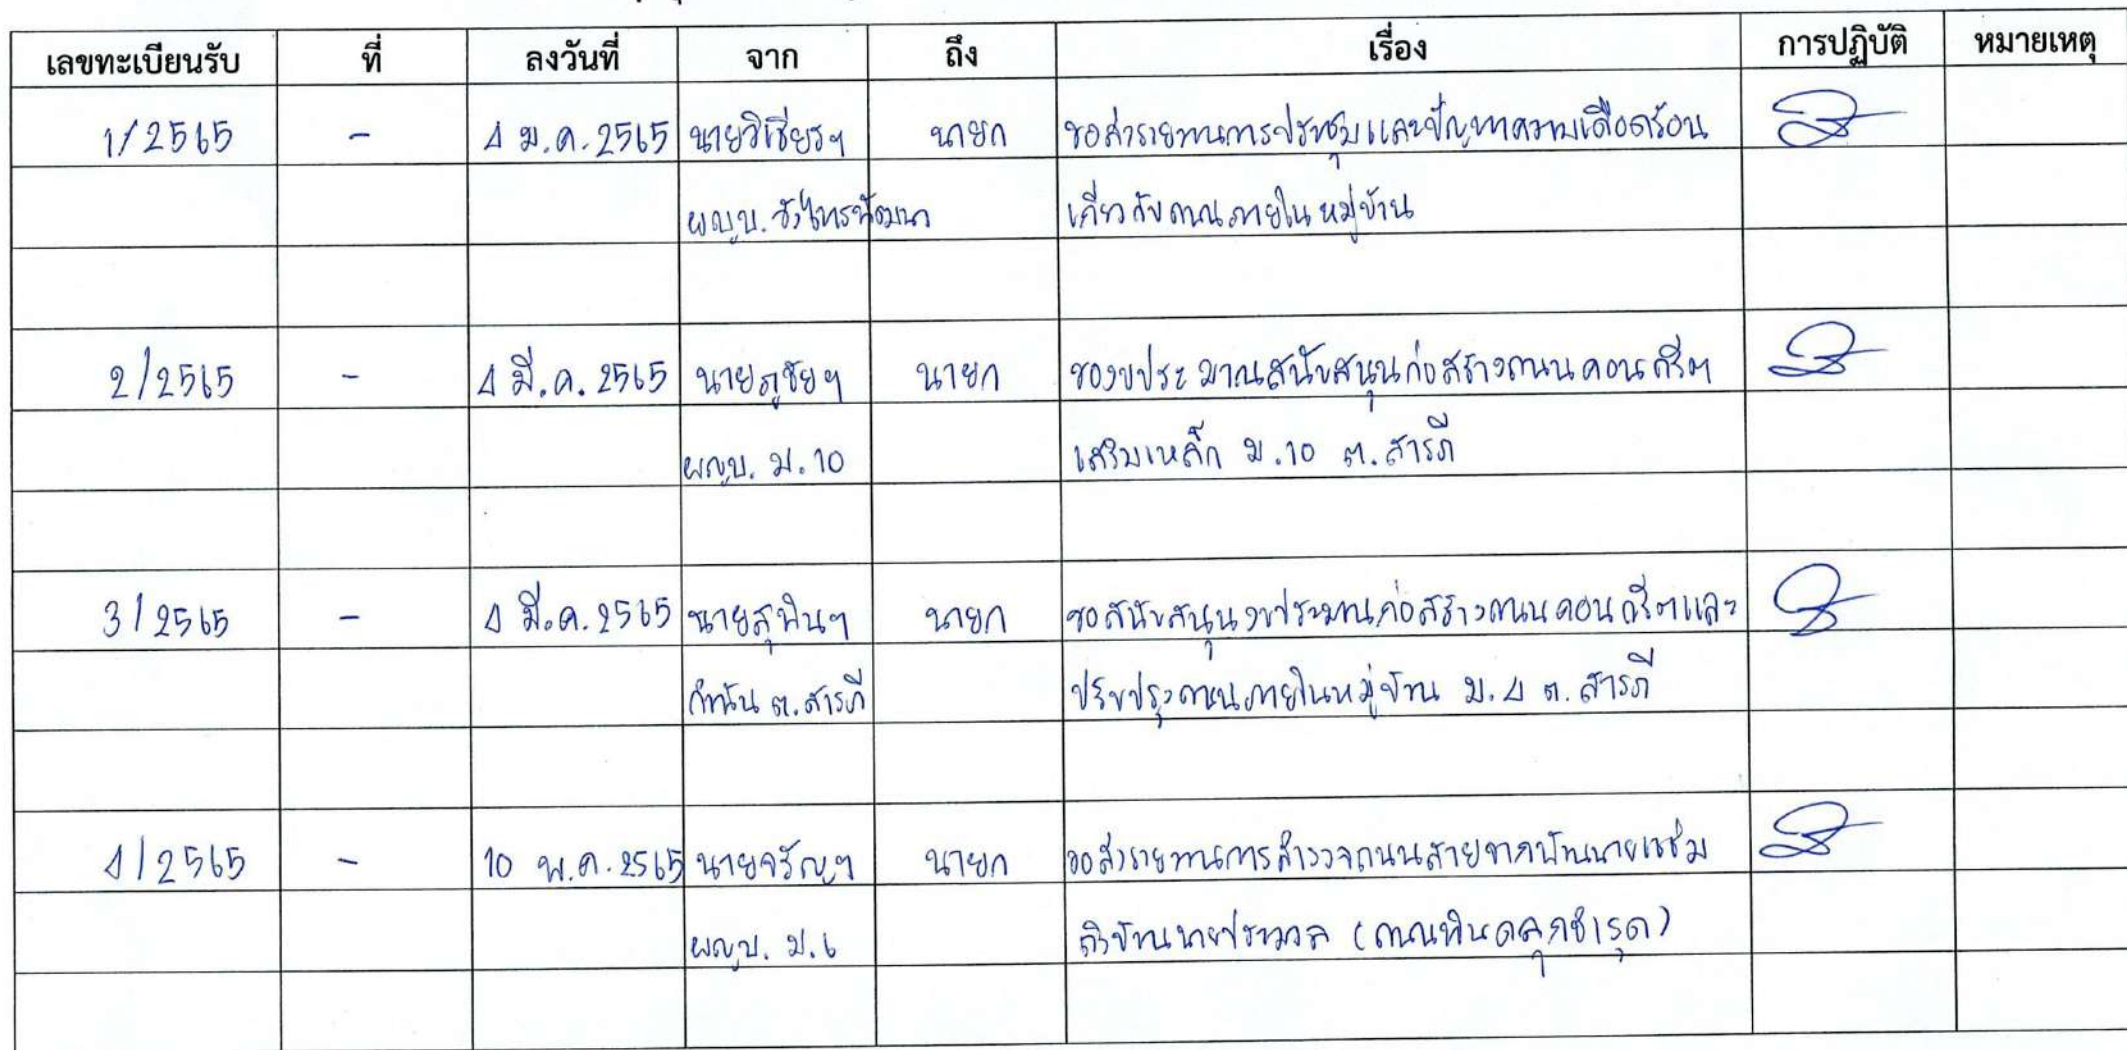 เลขทะเบียนรับ ที่ ลงวันที่ จาก ถึง เรื่อง การปฏิบัติ หมายเหตุ
1/2565 - 4 ม.ค. 2565 นายวิเชียรฯ นายก ขอส่งรายงานการประชุมและปัญหาความเดือดร้อน
ผญบ. วังไทรพัฒนา เกี่ยวกับถนนภายในหมู่บ้าน
2/2565 - 4 มี.ค. 2565 นายภูชัยฯ นายก ของบประมาณสนับสนุนก่อสร้างถนนคอนกรีต
ผญบ. ม.10 เสริมเหล็ก ม.10 ต.สารภี
3/2565 - 4 มี.ค. 2565 นายสุพินฯ นายก ขอสนับสนุนงบประมาณก่อสร้างถนนคอนกรีตและ
กำนัน ต.สารภี ปรับปรุงถนนภายในหมู่บ้าน ม.4 ต.สารภี
4/2565 - 10 พ.ค. 2565 นายจรัญฯ นายก ขอส่งรายงานการสำรวจถนนสายจากบ้านนายแช่ม
ผญบ. ม.6 ถึงบ้านนายประมวล (ถนนหินคลุกชำรุด)